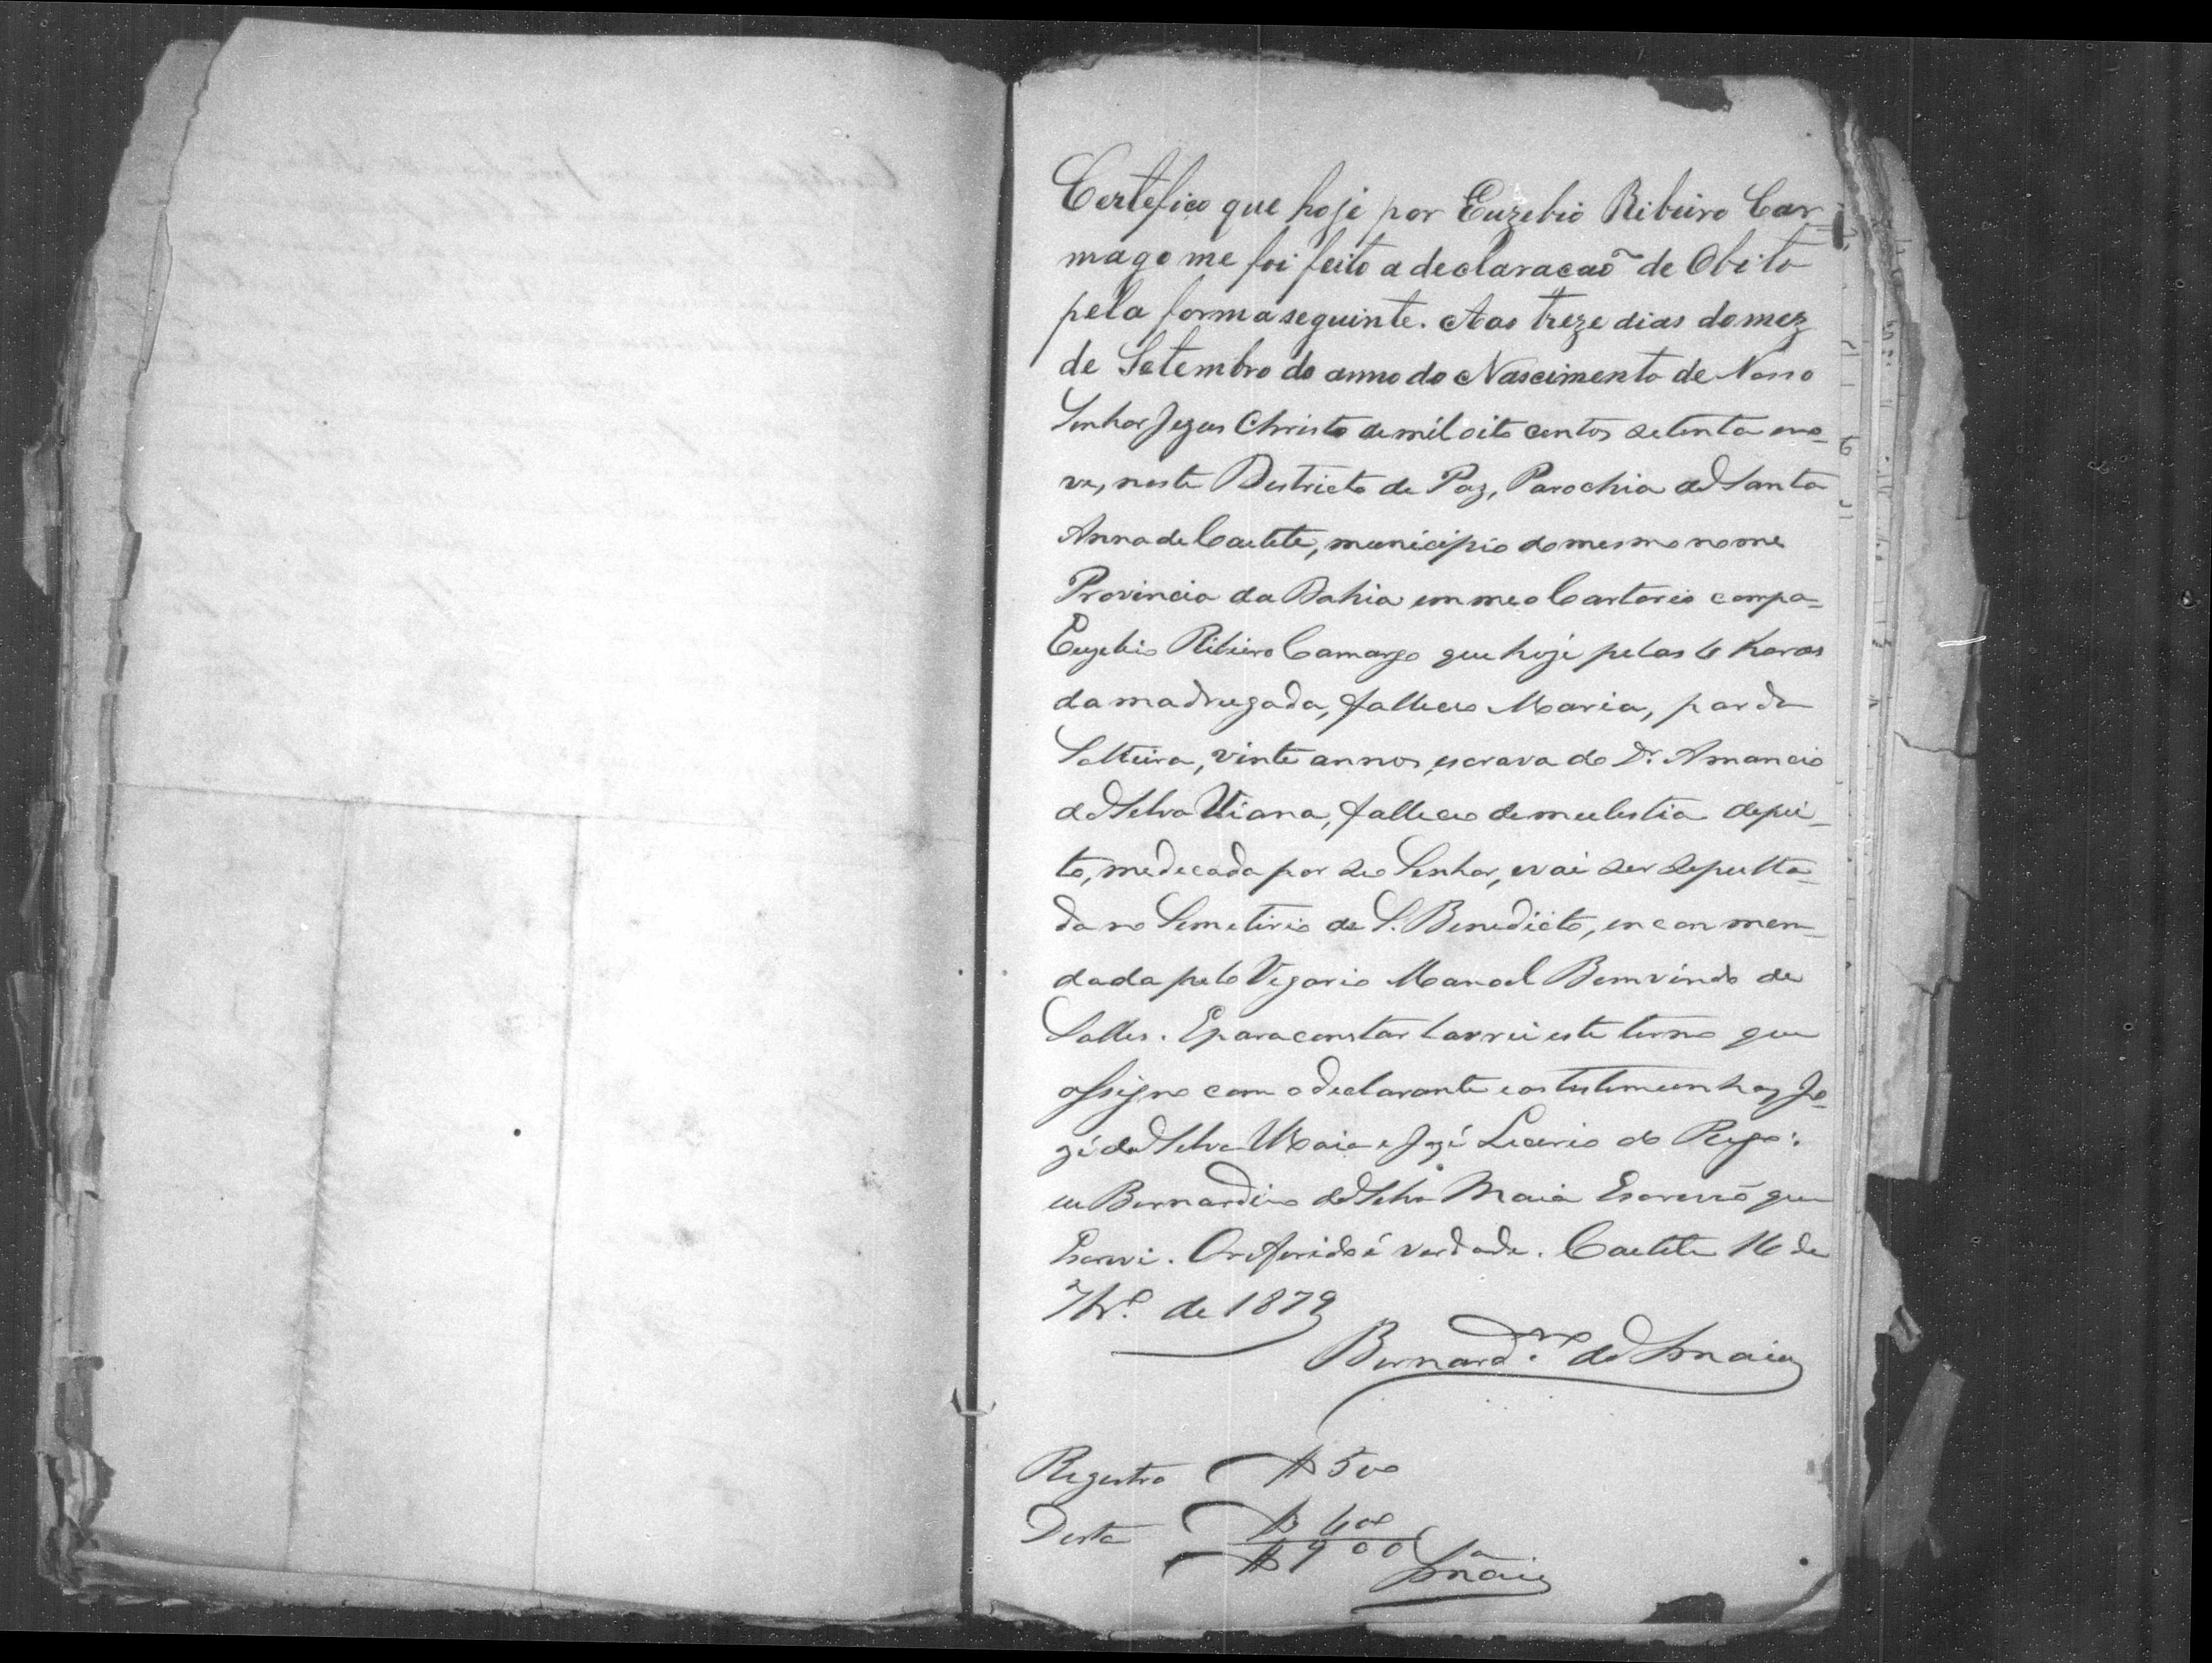 Certefico que hoje por Euzebio Ribeiro Car-
mago me foi feito a declaracaõ de Obito
pela forma seguinte. Aos treze dias do mez
de Setembro do anno do Nascimento de Nosso
Senhor Jezus Christo de mil oito centos setenta eno-
ve, neste Destricto de Paz, Parochia de Santa
Anna de Caetete, municipio do mesmo nome
Provincia da Bahia em meo Cartorio compa-
Euzebio Ribeiro Camargo que hoje pelas 4 horas
da madrugada, falleceo Maria, parda
Solteira, vinte annos, escrava do Dr. Amancio
da Silva Viana, falleceo de mulestia depei-
to, medecada por seo Senhor, e vai ser sepulta-
da no Semeterio de S. Benedicto, enconmen-
dada pelo Vegario Manoel Bemvindo de
Salles. E para constar lavrei este termo que
assigno com o declarante e as testimunhas Jo-
zé da Silva Maia e Jozé Licerio do Rego:
eu Bernardino da Silva Maia Escrevão que
Escrevi. O referido é verdade. Caetete 16 de
7br.º de 1879
Bernard.no da S Maia
Registro $500
Desta $400
$900
SMaia